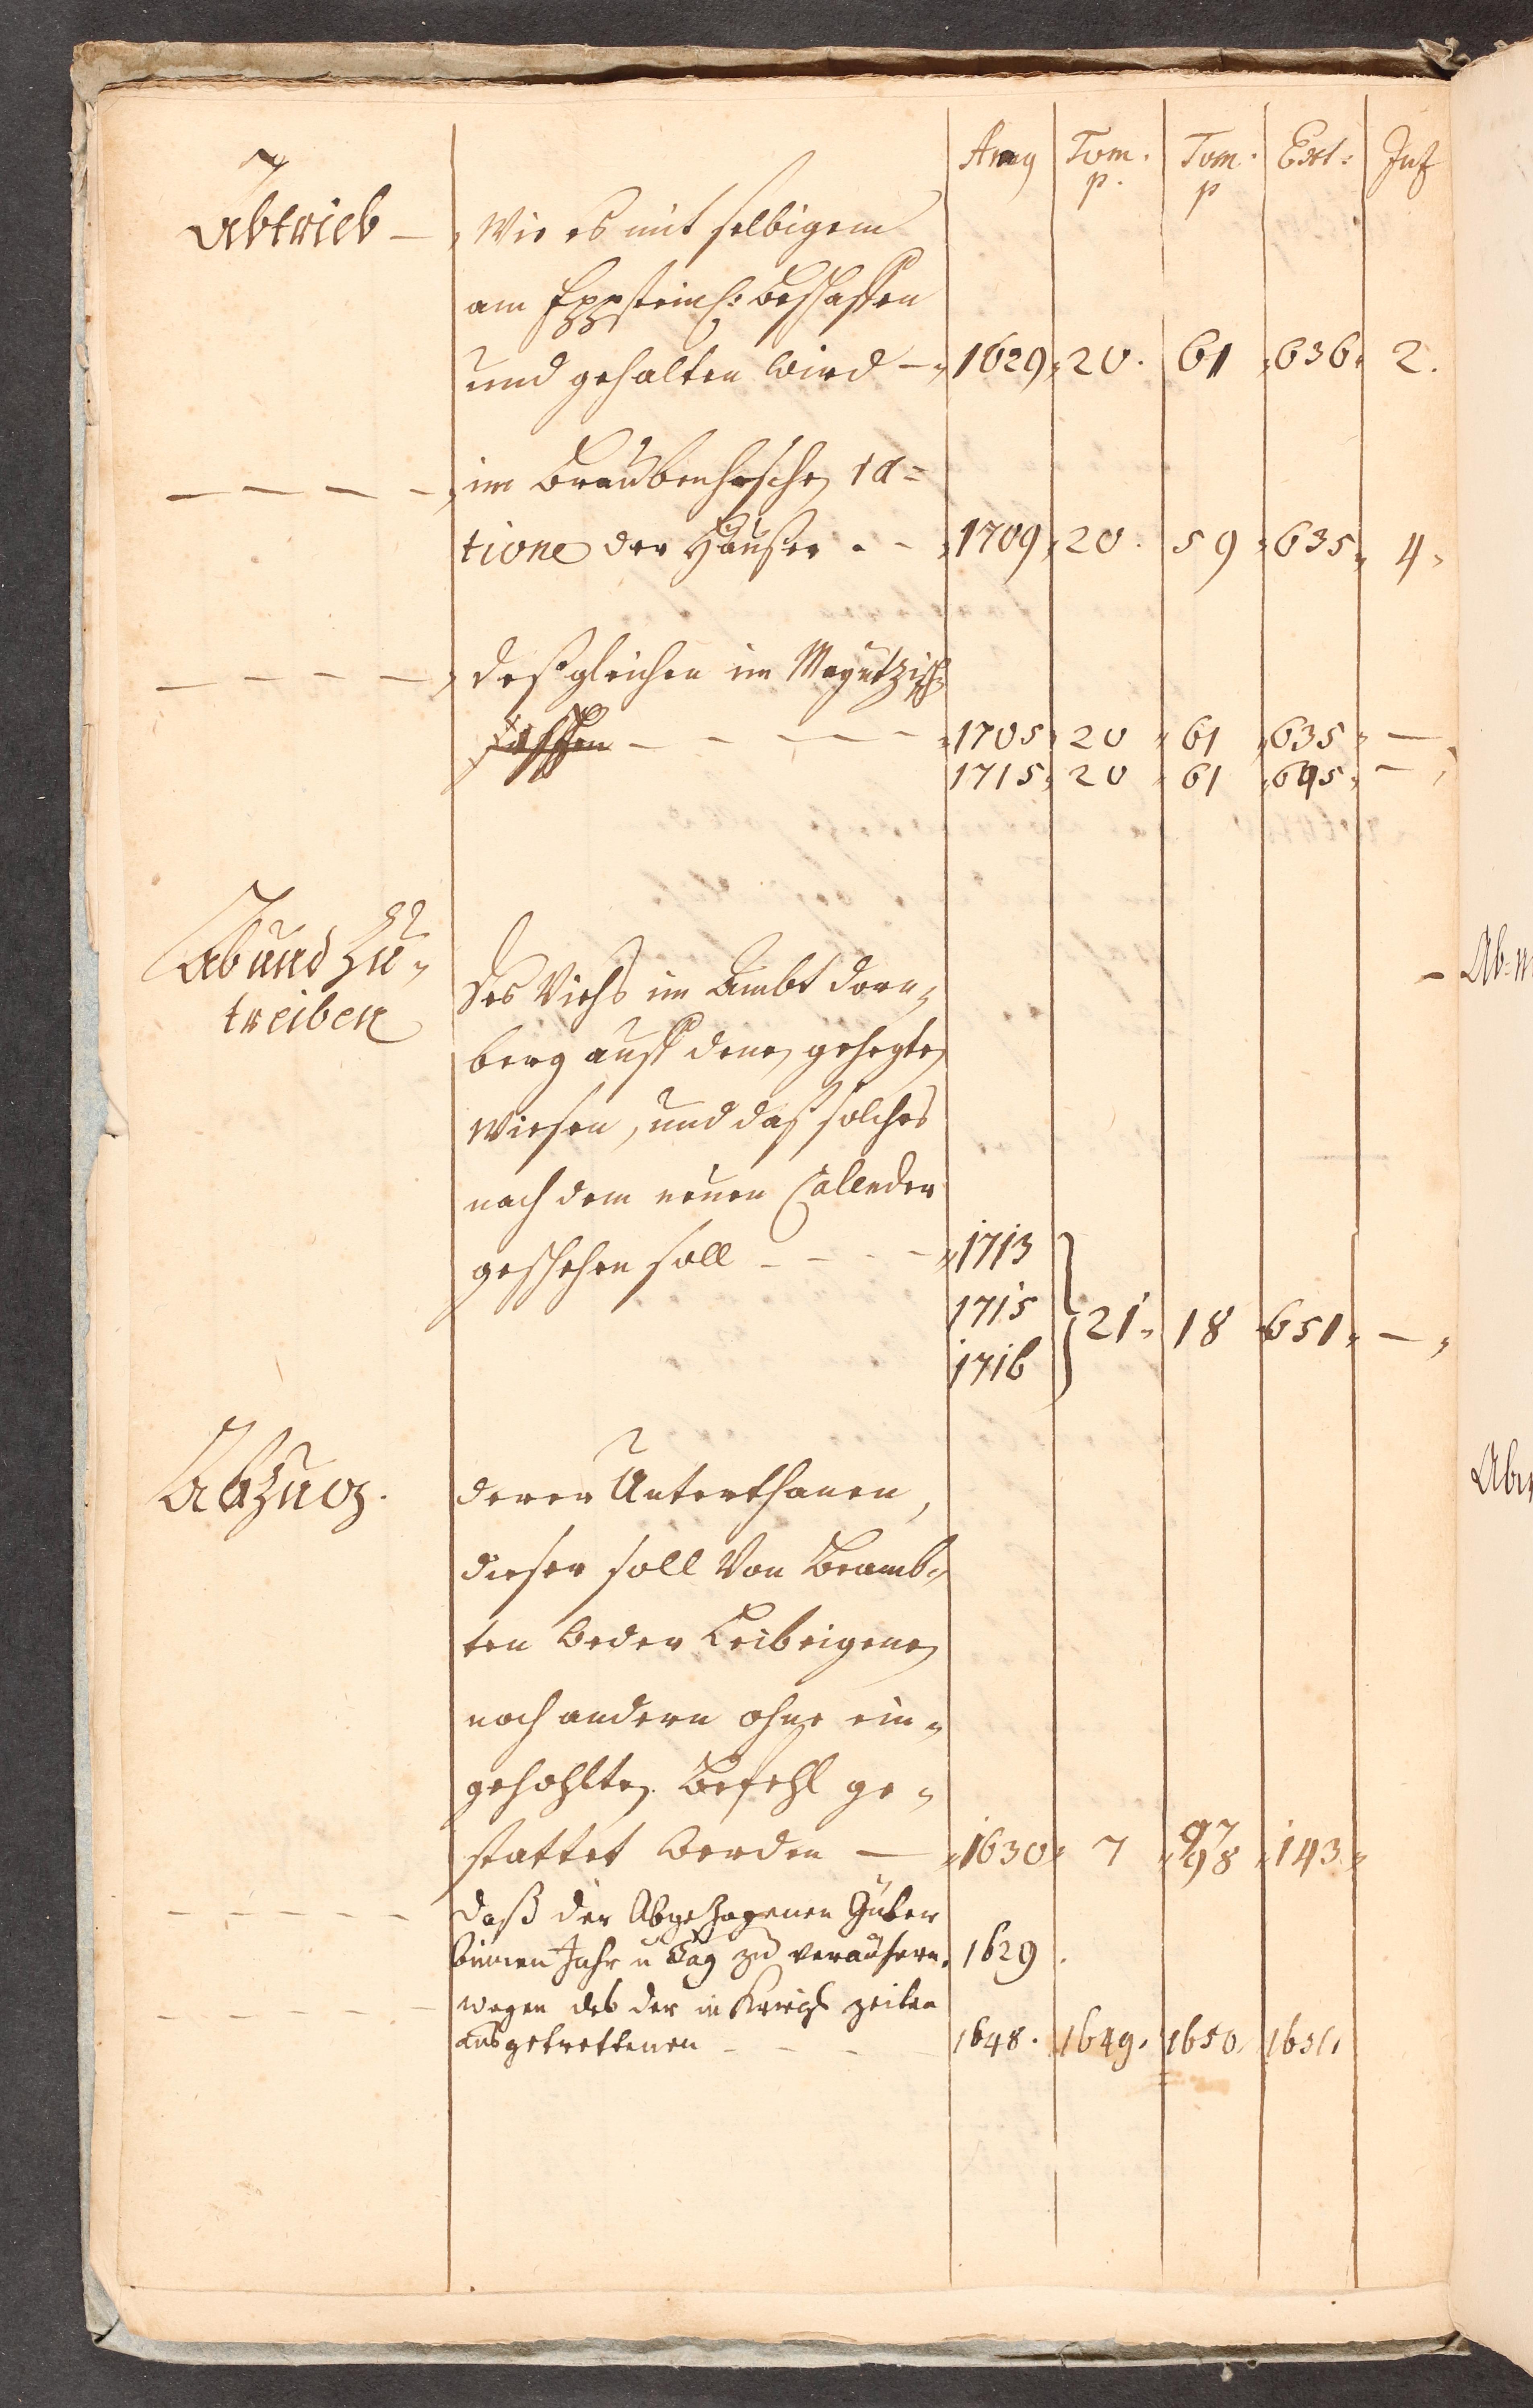 Anny Tom. p. Tom. p Ext: Inf
Abtrieb — Wie es mit selbigem
am Eppstein: beschaffen
und gehalten wird — 1629, 20. 61 636. 2.
— — — — im Braubachischen ra=
tione der Häuser . - 1709, 20. 59 635, 4.
— — — — deßgleichen im Mayntzisch
— — — — 1705, 20 61 635 —
1715, 20 61 695, —
Ab und Zu-
treiben
des Viehs im Ambt Dorn-
berg auff denen gehegten
Wiesen, und daß solches
nach dem neuen Callender
geschehen soll - - - - 1713
1715 } 21. 18 651. —
1716
Abzug. derer Unterthanen,
dieser soll von Beamb-
ten weder Leibeigenen
noch andern ohne ein-
gehohlten Befehl ge-
stattet werden — 1630. 7 97 98 143.
- - - - - daß der Abgezogenen Güter
binnen Jahr u Tag zu veräusern. 1629.
- - - - - wegen des der in Kriegs zeiten
ausgetrettenen - - - 1648. 1649. 1650. 1651.
Ab
Ab